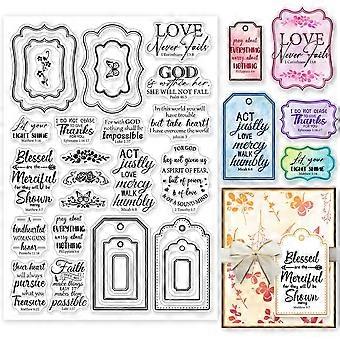 LOVE
Never Fails
1 Corinthians 13:8
GOD
is within her,
SHE WILL NOT FALL
Psalm 46:5
Let your
LIGHT SHINE
Matthew 5:16
I DO NOT CEASE
to Give
THANKS
FOR YOU
Ephesians 1:16-17
For with GOD
nothing shall be
Impossible
Luke 1:37
In this world you
will have trouble
but take heart!
I have overcome
the world
John 16:33
Blessed
are the
Merciful
for they will be
Shown
mercy
ACT
justly
LOVE
mercy
WALK
humbly
Micah 6:8
FOR GOD
hay not given us
A SPIRIT OF FEAR,
but of
power
of LOVE
& OF A SOUND MIND
2 Timothy 1:7
A
kindhearted
WOMAN GAINS
honor
Proverbs 11:16
pray about
EVERYTHING
worry about
NOTHING
Philippians 4:6
Your heart
will always
pursue
what you
Treasure
Matthew 6:21
Faith
makes things
Possible
LOVE
Never Fails
1 Corinthians 13:8
pray about
EVERYTHING
worry about
NOTHING
Philippians 4:6
ACT
justly
LOVE
mercy
WALK
humbly
Micah 6:8
I DO NOT CEASE
to Give
THANKS
FOR YOU
Ephesians 1:16-17
Let your
LIGHT SHINE
Matthew 5:16
Blessed
are the
Merciful
for they will be
Shown
mercy